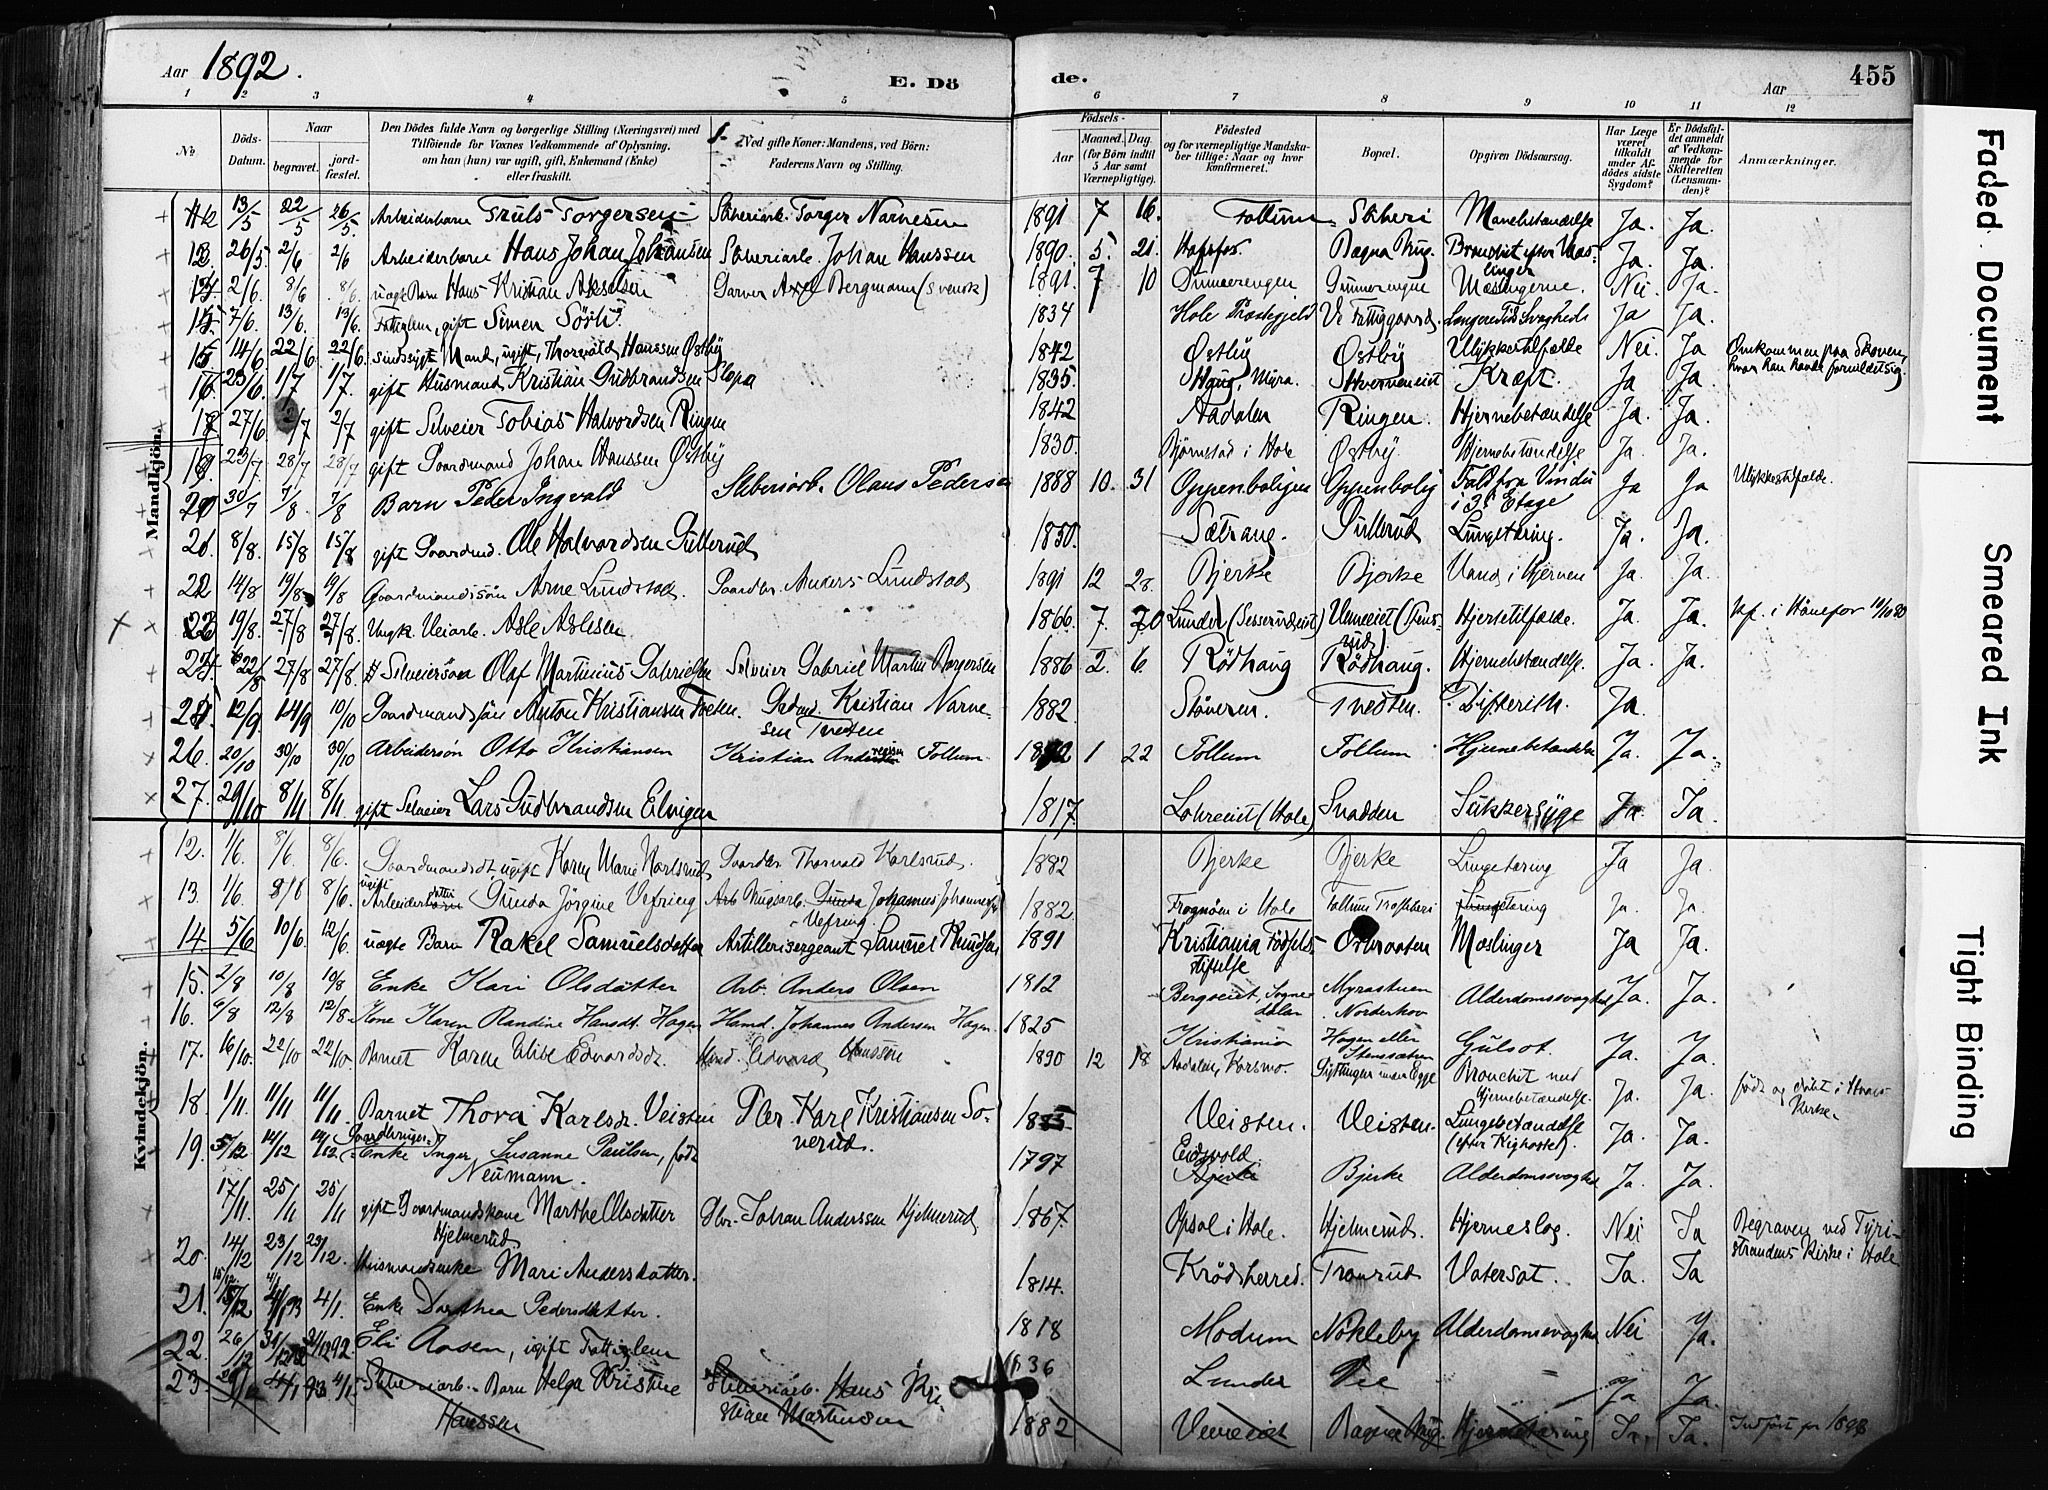 Aar 1892. E. Dö de. Aar 455
1 2 3 4 5 6 7 8 9 10 11 12
№ Döds-Datum. Naar begravet. jord-fæstet. Den Dödes fulde Navn og borgerlige Stilling (Næringsvei) med Tilföiende for Voxnes Vedkommende af Oplysning, om han (hun) var ugift, gift, Enkemand (Enke) eller fraskilt. Ved gifte Koner: Mandens, ved Börn: Faderens Navn og Stilling. Födsels- Aar Maaned. Dag. (for Börn indtil 5 Aar samt Værnepligtige). Födested og for værnepligtige Mandskaber tillige: Naar og hvor konfirmeret. Bopæl. Opgiven Dödsaarsag. Har Læge været tilkaldt under Afdödes sidste Sygdom? Er Dödsfaldet anmeldt af Vedkommende for Skifteretten (Lensmanden)? Anmærkninger.
Mandkjön.
13/5 22/5 26/5 Arbeiderbarn Truls Torgersen Sliberiarb. Torger Narvesen 1891 7 16 Follum Sliberi Ja. Ja.
26/5 2/6 2/6 Arbeiderbarn Hans Johan Johansen Sliberiarb. Johan Hanssen 1890. 5. 21. Hofsfos. Bægna Brug. Bronchit efter Mæslinger Ja. Ja.
2/6 8/6 8/6 uægte Barn Hans Kristian Akselsen Garver Axel Bergmann (svensk) 1891 7 10 Mæslingerne. Nei Ja.
7/6. 13/6. 13/6. Fattiglem, gift Simen 1834 Hole Præstegjeld Ve Fattiggaard. Ja Ja.
15 14/6 22/6. 22/6. sindssygt Mand, ugift, Thorvald Hanssen Østby 1842 Østby Østby Ulykkestilfælde Nei. Ja Omkommen paa Skoven, hvor han havde forvildet sig.
16 23/6 1/7 1/7. gift Husmand Kristian Gudbrandsen 1835 Haug, Myra. Kræft. Ja Ja.
27/6 2/7 2/7 gift Selveier Tobias Halvordsen Ringen 1842 Aadalen Ringen. Hjernebetændelse Ja. Ja.
23/7. 28/7 28/7 gift Gaardmand Johan Hanssen Østby 1830. Bjørnstad i Hole Østby. Hjernebetændelse Ja. Ja.
30/7 7/8 7/8 Barn Peder Ingvald Sliberiarb. Olaus Pedersen 1888 10. 31 Oppenboligen Oppenbolig Fald fra Vindu i 3d Etage Ja Ja Ulykkestilfælde.
21. 8/8. 15/8 15/8 gift Gaardmd. Ole Halvordsen Gullerud 1850. Sætrang. Gullerud Lungetæring. Ja. Ja.
22 14/8 19/8 19/8 Gaardmandssön Arne Lundstad. Gaardbr. Anders Lundstad 1891 12 28. Bjerke Bjerke Vand i Hjernen Ja. Ja.
23 19/8. 27/8 27/8. Ungk. Veiarb. Asle Aslesen 1866 7. 20 Lunder Hjertetilfælde. Ja. Ja. kf. i Hönefos
24 22/8 27/8 27/8. Selveiersøn Olaf Martinius Gabrielsen Selveier Gabriel Martin Borgersen 1886 2. 6 Rödhaug Rödhaug. Hjernebetændelse. Ja. Ja.
25 12/9. 14/9 10/10 Gaardmandssön Anton Kristiansen Tveten. Gaardmd. Kristian Narvesen Tveten 1882 Stöveren. Tvedten. Difterith. Ja
26. 20/10 30/10 30/10 Arbeidersøn Otto Kristiansen Kristian Follum. 1 22 Follum Follum Hjernebetændelse Ja. Ja.
27. 29/10 8/11 8/11. gift Selveier Lars Gudbrandsen Elvigen 1817. Lohreeiet (Hole) Snadden Sukkersyge Ja. Ja.
Kvindekjön.
12. 1/6. 8/6. 8/6. Gaardmandsdt. ugift Karen Marie Karlsrud Gaardbr. Thorvald Karlsrud. 1882 Bjerke Bjerke Lungetæring Ja Ja.
13. 1/6. 8/6 8/6. ugift Arbeiderdatter Gunda Jörgine Vefring Arb Brugsarb. Gunda Johannes Johannessen Vefring 1882 Frognøen i Hole Follum Træsliberi Lungetæring Ja. Ja.
14 5/6 10/6. 12/6. uægte Barn Rakel Samuelsdatter Artillerisergeant Samuel Knudsen 1891 Kristiania Födselsstiftelse Mæslinger Ja Ja.
15. 2/8 10/8 10/8 Enke Kari Olsdatter Arb. Anders Olsen 1812 Bergseiet, Sognedalen Myrastuen Norderhov Alderdomssvaghed Ja. Ja.
16. 6/8 12/8 12/8. Kone Karen Randine Hansdt. Hagen Hmd. Johannes Andersen Hagen. 1825 Kristiania Hagen eller Gulsot. Ja. Ja.
17. 16/10. 22/10 22/10. Barnet Karen Elise Edvardsdt. Edvard Hanssen 1890 12 18 Aadalen, Korsmo Bronchit med Hjernebetændelse. Ja. Ja. født og döbt i Kirke.
18. 1/11. 11/11 11/11. Barnet Thora Karlsd. Veisten Gbr. Karl Kristiansen Soverud. Veisten. Veisten. Lungebetændelse (efter Kighoste). Ja. Ja.
19. 5/12 14/12 14/12. (Gaardbruger-) Enke Inger Susanne Paulsen, født Neumann. 1797 Eidsvold Bjerke Bjerke Alderdomssvaghed Ja. Ja.
17/11. 25/11 25/11 gift Gaardmandskone Marthe Olsdatter Hjelmerud Gbr. Johan Anderssen Hjelmerud 1867 Opsal i Hole. Hjelmerud. Hjerneslag. Nei Ja Begraven ved Tyristrandens Kirke i Hole
20. 14/12 23/12 23/12. Husmandsenke Mari Andersdatter. 1814. Krödsherred. Tranrud Vatersot. Ja. Ja
21. 15/12 4/1 93 4/1. Enke Dorthea Pedersdatter. 1818 Modum Nökleby Alderdomssvaghed Nei Ja.
22. 26/12 31/12 92 31/12 92. Eli Aasen, ugift Fattiglem 1836 Lunder Vee = Ja Ja.
23. 4/1 93 4/1 Sliberiarb. Barn Helga Kristine Hanssen Sliberiarb. Hans Kristian Martinsen 1882 Veneeiet Bægna Brug. Hjernetæring Ja. Ja. Indført for 1893
Faded Document
Smeared Ink
Tight Binding